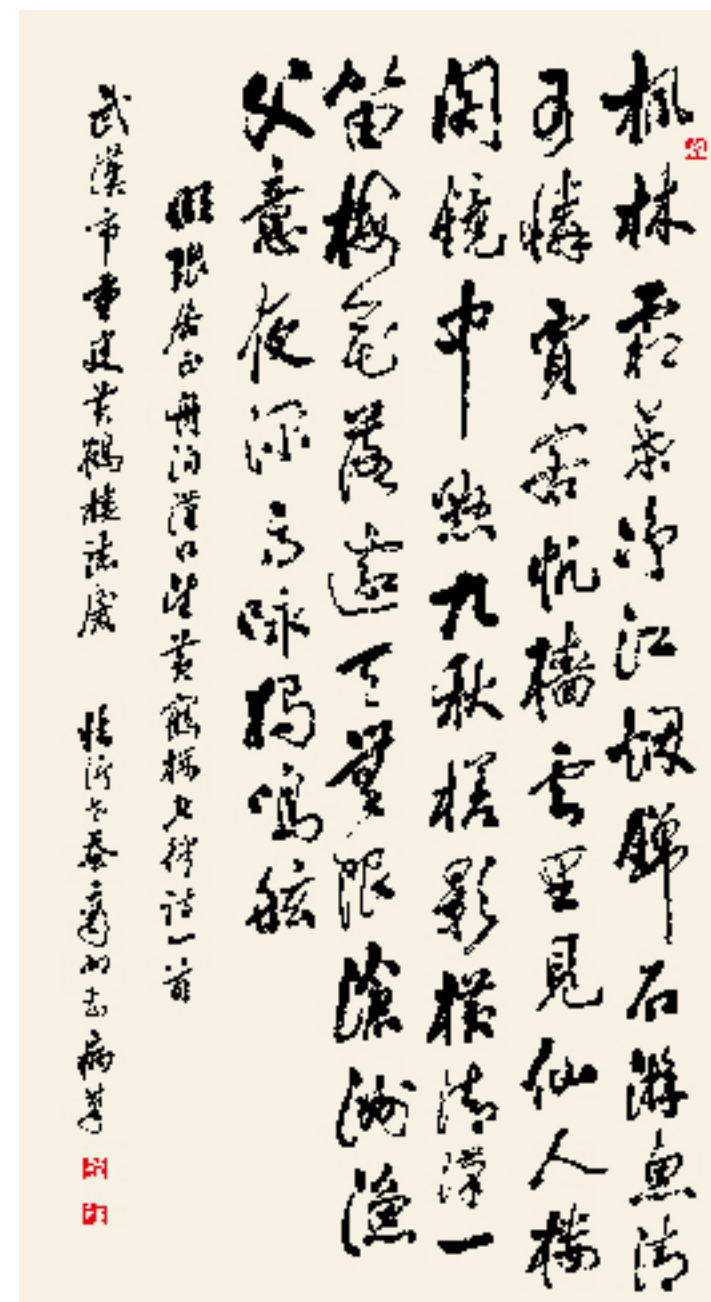 楓林霜葉净江烟錦石游魚清
可憐賈客帆檣雲里見仙人樓
閣鏡中懸九秋槎影横清漢一
笛梅花落遠天無限滄洲漁
父意夜深高詠獨鳴舷
明張居正舟泊漢口望黄鶴樓七律詩一首
武漢市重建黄鶴樓誌慶